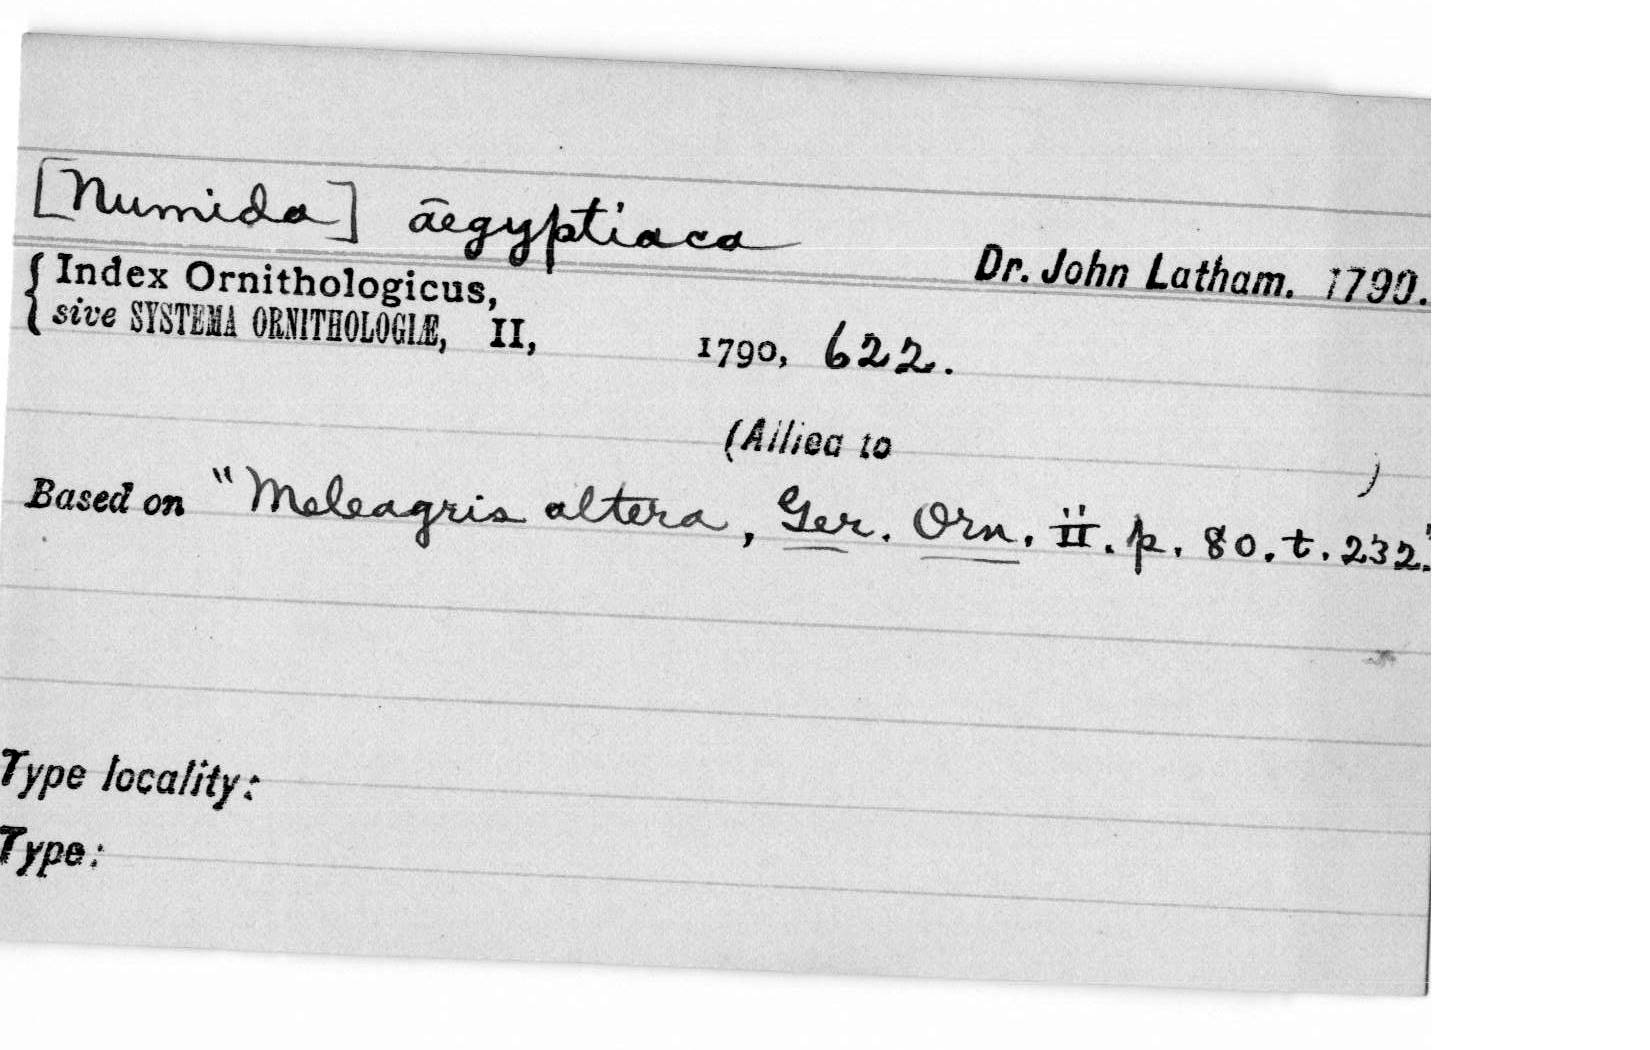 [Numida] aegyptiaca
Dr. John Latham. 1790.
{ Index Ornithologicus,
sive SYSTEMA ORNITHOLOGIÆ, II, 1790, 622.
(Allied to )
Based on "Meleagris altera, Ger. Orn. ii. p. 80. t. 232."
Type locality:
Type: